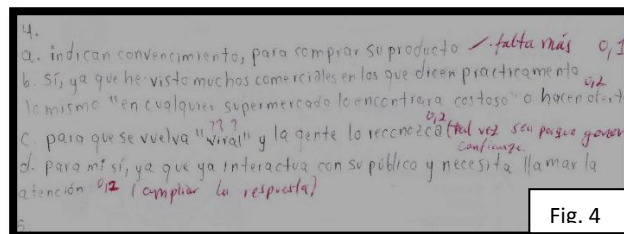 4.
a. indican convencimiento, para comprar su producto ✓ falta más 0,1
b. Sí, ya que he visto muchos comerciales en los que dicen practicamento 0,2
lo mismo "en cualquier supermercado lo encontrara costoso" o hacen ofert
???
c. para que se vuelva "viral" y la gente lo reconozca 0,2 (tal vez sea porque gener
confianza
d. Para mi sí, ya que ya interactua con su público y necesita llamar la
atención 0,2 (ampliar la respuesta)
5.
Fig. 4